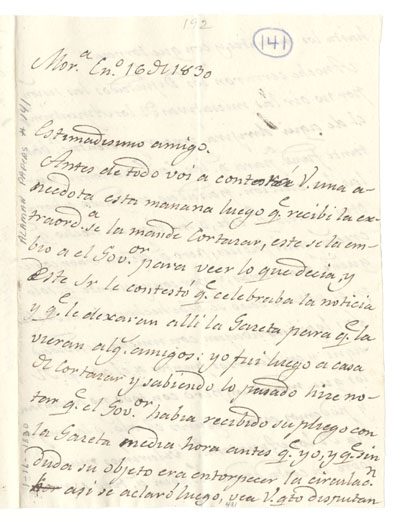 192
141
Mor.a En.o 16 de 1830
Estimadisimo amigo.
Antes de todo voi a contar a V. una a-
necdota esta mañana luego q.e recibi la ex-
traord.a se la mandé Cortazar, este se la em-
bio a el Gov.or para veer lo que decia, y
Este Sr. le contestó q.e celebraba la noticia
y q.e le dexaran alli la Gazeta para q.e la
vieran alg.s amigos: yo fui luego a casa
de Cortazar y sabiendo lo pasado hize no-
tar q.e el Gov.or habia recibido su pliego con
la Gazeta media hora antes q.e yo, y q.e sin
duda su objeto era entorpecer la circulac.n
asi se aclaró luego, vea V. q.to disputan
ALAMAN PAPERS # 141
1-16-1830